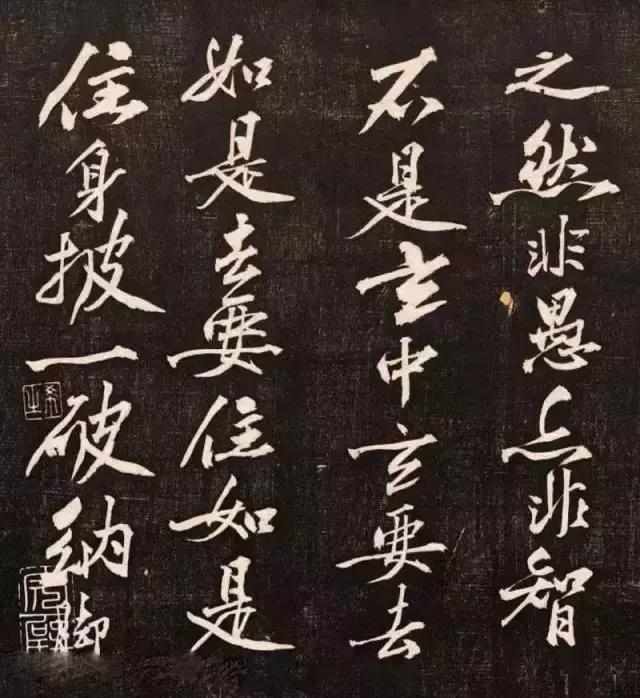 之然非愚亦非智
不是玄中玄要去
如是去要住如是
住身披一破纳脚